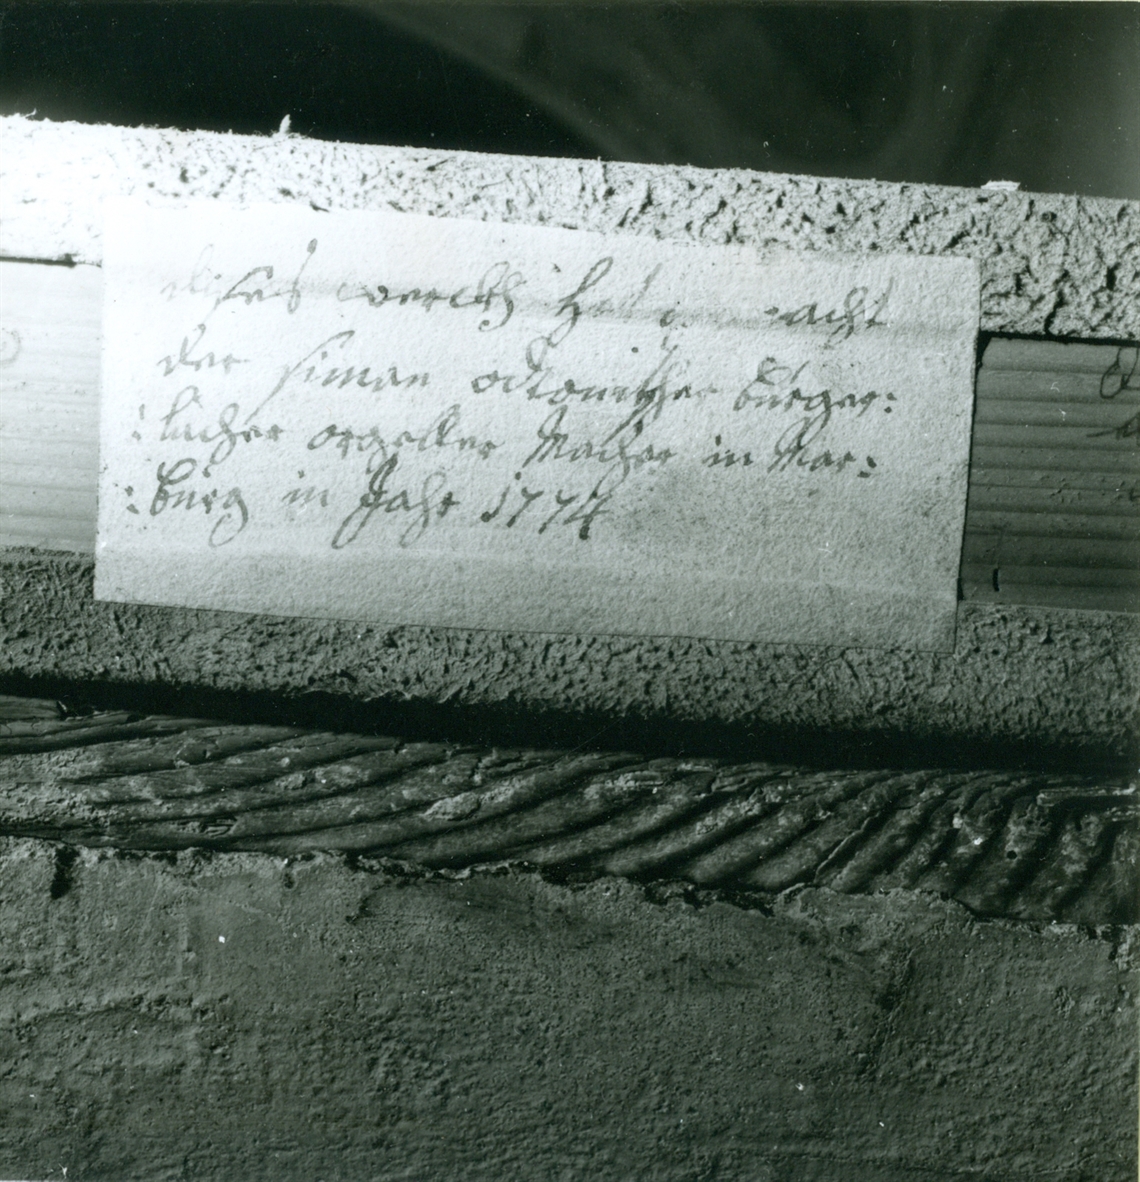 dises werckh hat gemacht
der siman odtonitscher burger:
:licher orgeller Macher in Mar:
:burg in Jahr 1774